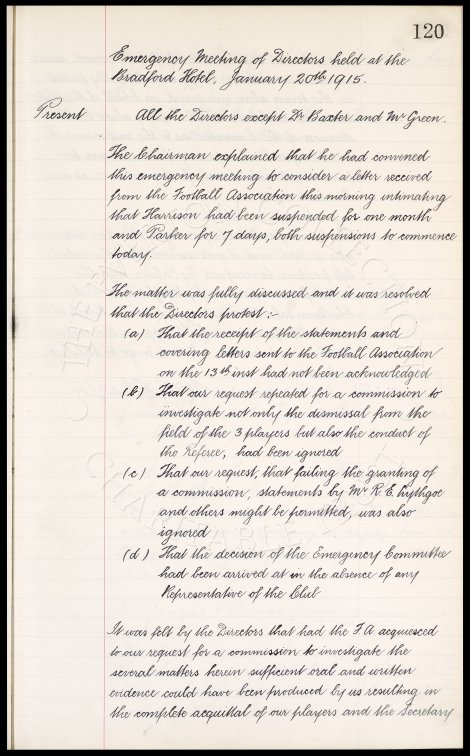 120
Emergency Meeting of Directors held at the
Bradford Hotel, January 20th 1915.
Present All the Directors except Dr Baxter and Mr Green.
The Chairman explained that he had convened
this emergency meeting to consider a letter received
from the Football Association this morning intimating
that Harrison had been suspended for one month
and Parker for 7 days, both suspensions to commence
today.
The matter was fully discussed and it was resolved
that the Directors protest:-
(a) That the receipt of the statements and
covering letters sent to the Football Association
on the 13th inst had not been acknowledged
(b) That our request repeated for a commission to
investigate not only the dismissal from the
field of the 3 players but also the conduct of
the Referee, had been ignored
(c) That our request, that failing the granting of
a commission, statements by Mr R. E. Lythgoe
and others might be permitted, was also
ignored
(d) That the decision of the Emergency Committee
had been arrived at in the absence of any
Representative of the Club
It was felt by the Directors that had the F.A acquiesced
to our request for a commission to investigate the
several matters herein sufficient oral and written
evidence could have been produced by us resulting in
the complete acquittal of our players and the Secretary